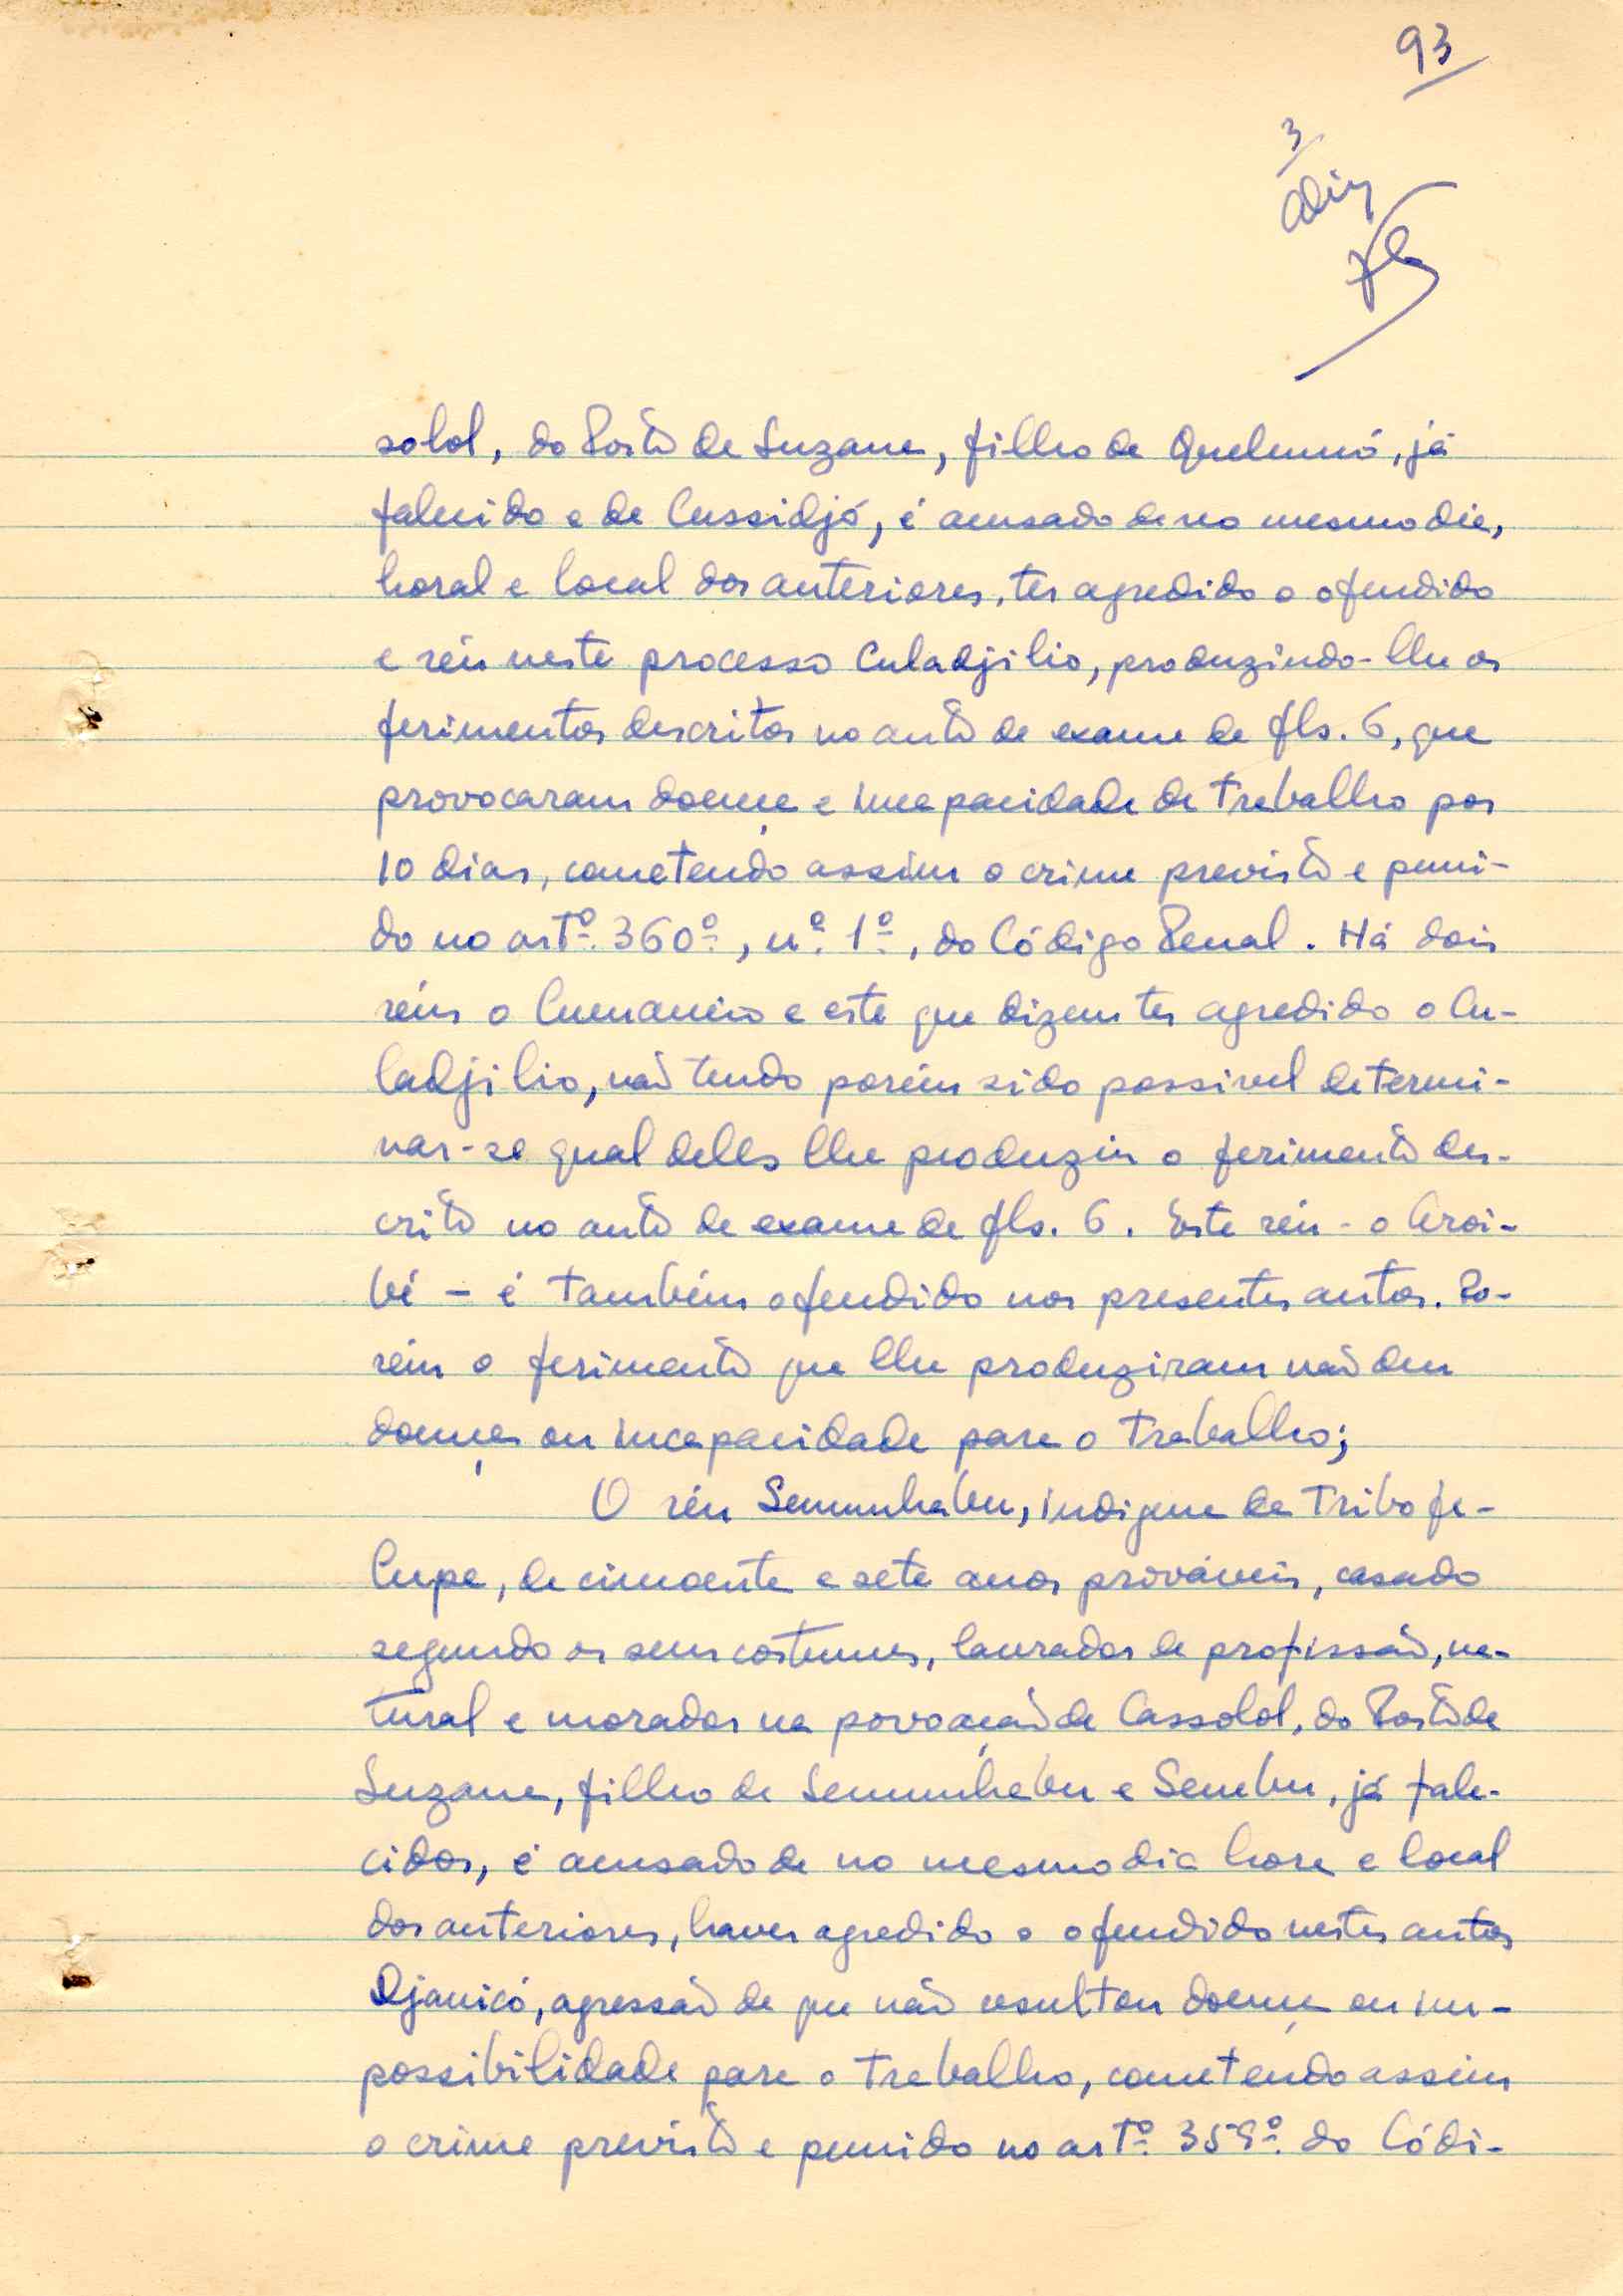 93
3
solol, do Posto de Suzana, filho de Quelumó, já
falecido e de Cussidjó, é acusado de no mesmo dia,
horal e local dos anteriores, ter agredido o ofendido
e réu neste processo Culadjilio, produzindo-lhe os
ferimentos descritos no auto de exame de fls. 6, que
provocaram doença e incapacidade de trabalho por
10 dias, cometendo assim o crime previsto e puni-
do no artº. 360º, nº. 1º, do Código Penal. Há dois
réus o e este que dizem ter agredido o Cu-
ladjilio, não tendo porém sido possivel determi-
nar-se qual deles lhe produziu o ferimento des-
crito no auto de exame de fls. 6. Este réu - o Croi-
bé - é também ofendido nos presentes autos. Po-
rém o ferimento que lhe produziram não deu
doença ou incapacidade para o trabalho;
O réu Semunhabu, indigena da Tribo fe-
lupe, de cincoenta e sete anos prováveis, casado
segundo os seus costumes, lavrador de profissão, na-
tural e morador na povoação de Cassolol, do Posto de
Suzana, filho de Semunhabu e Senebu, já fale-
cidos, é acusado de no mesmo dia hora e local
dos anteriores, haver agredido o ofendido nestes autos
Djanicó, agressão de que não resultou doença ou im-
possibilidade para o trabalho, cometendo assim
o crime previsto e punido no artº. 359º. do Códi-